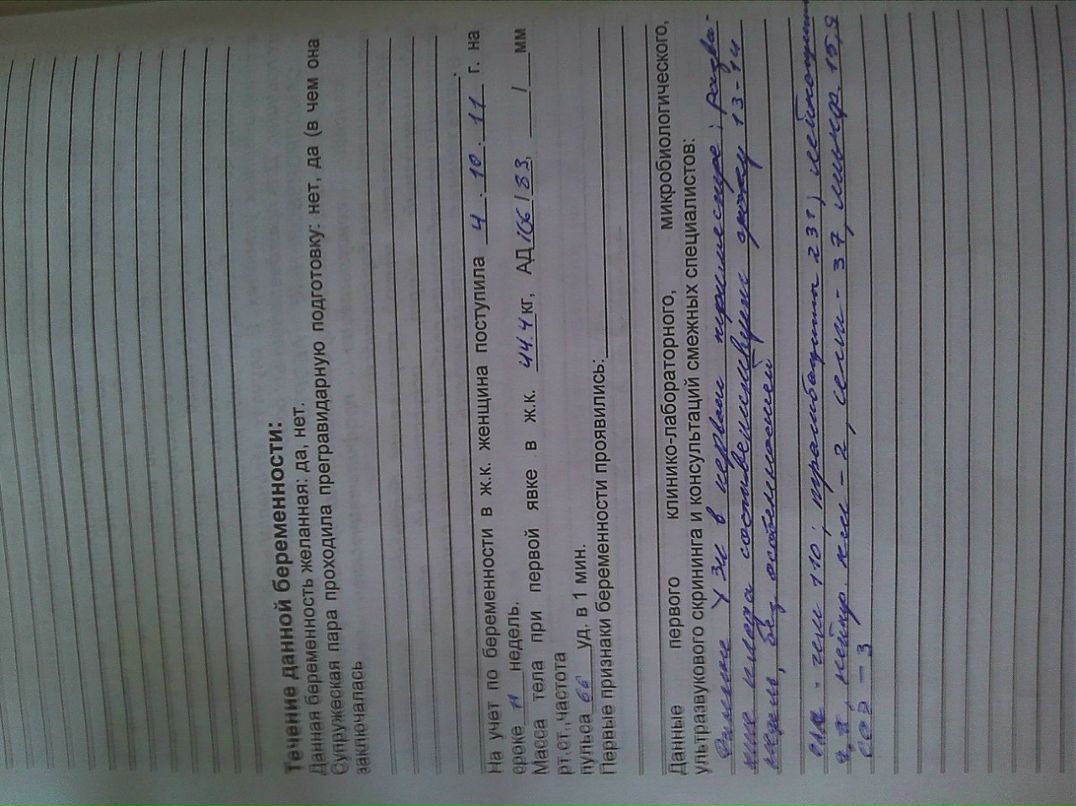 Течение данной беременности:
Данная беременность желанная: да, нет.
Супружеская пара проходила прегравидарную подготовку: нет, да (в чем она
заключалась
На учет по беременности в ж.к. женщина поступила 4.10.11 г. на
сроке 11 недель.
Масса тела при первой явке в ж.к. 44.4 кг, АД 106/83, / мм
рт.ст.,частота
пульса 66 уд. в 1 мин.
Первые признаки беременности проявились:
Данные первого клинико-лабораторного, микробиологического,
ультразвукового скрининга и консультаций смежных специалистов:
УЗИ в первом триместре: разви-
тие плода соответствует сроку 13-14
недель, без особенностей
ОАК - гем 110; тромбоциты 231, лейкоциты
нейтр. - 2, сегм - 37, лимф. 15,9
СОЭ - 3